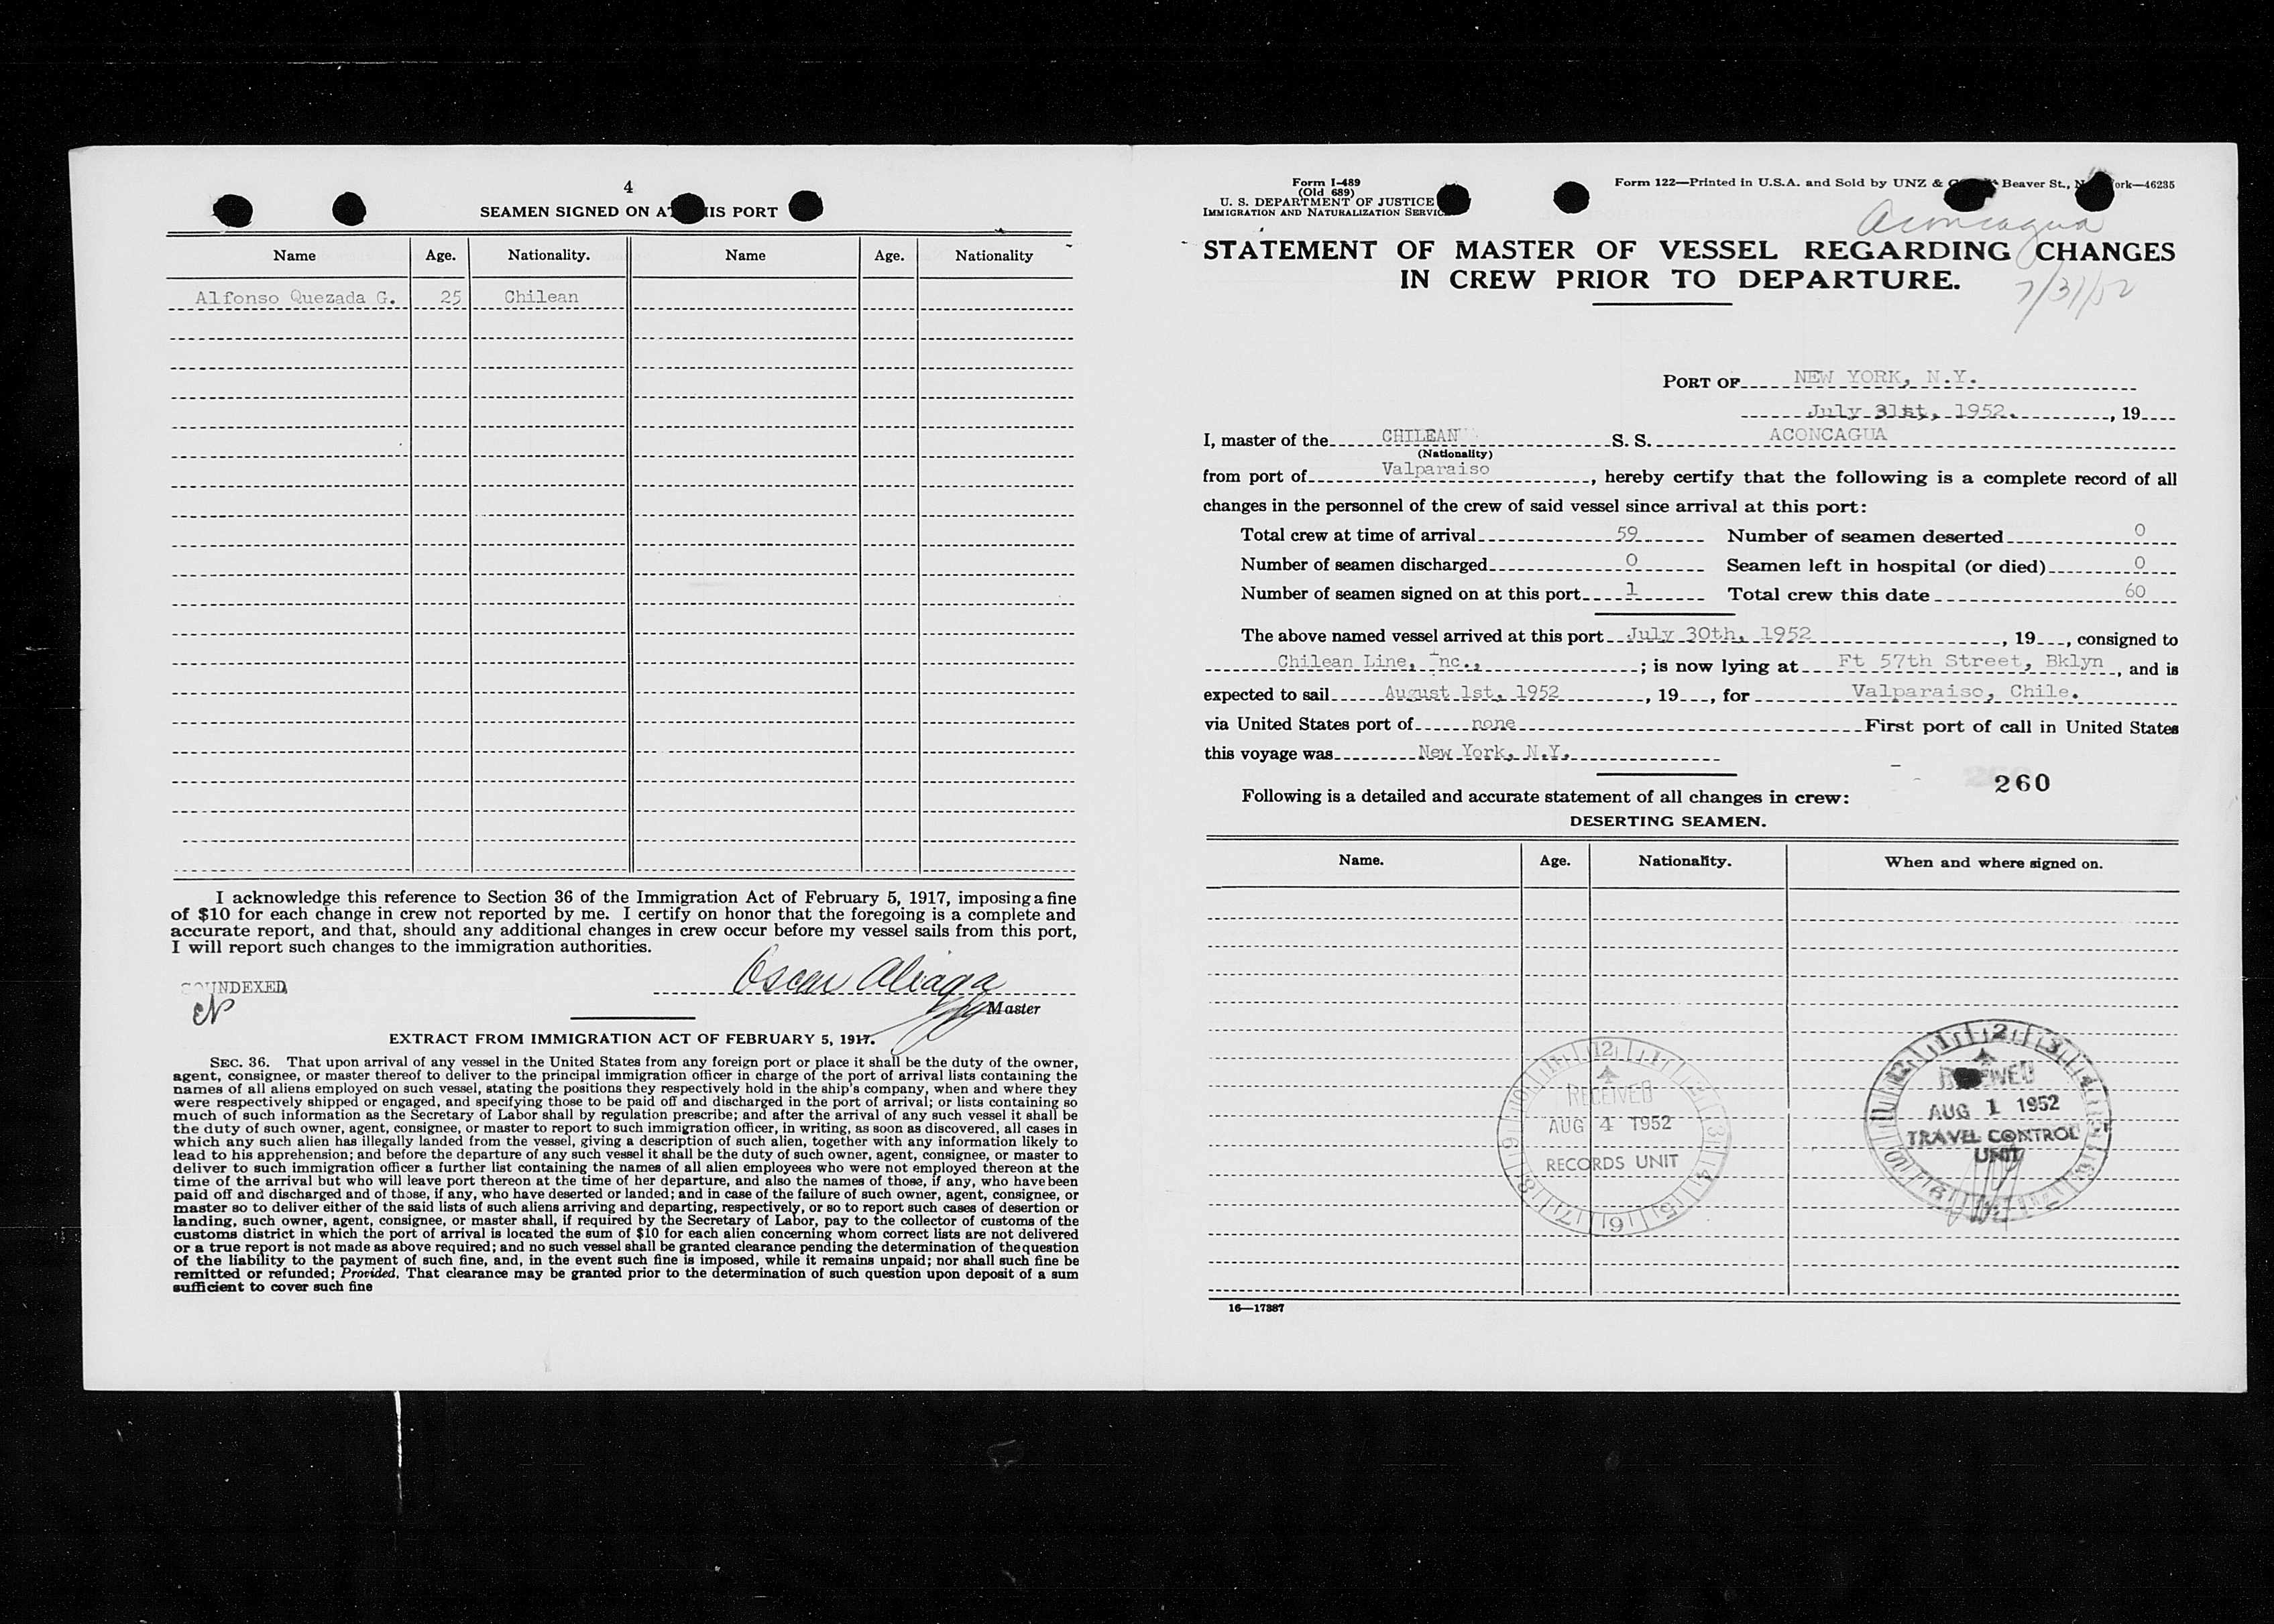 4
SEAMEN SIGNED ON AT THIS PORT
Name Age. Nationality. Name Age. Nationality
Alfonso Quezada G. 25 Chilean
I acknowledge this reference to Section 36 of the Immigration Act of February 5, 1917, imposing a fine
of $10 for each change in crew not reported by me. I certify on honor that the foregoing is a complete and
accurate report, and that, should any additional changes in crew occur before my vessel sails from this port,
I will report such changes to the immigration authorities.
Oscar Aliaga
SOUNDEXED
Master
EXTRACT FROM IMMIGRATION ACT OF FEBRUARY 5, 1917.
SEC. 36. That upon arrival of any vessel in the United States from any foreign port or place it shall be the duty of the owner,
agent, consignee, or master thereof to deliver to the principal immigration officer in charge of the port of arrival lists containing the
names of all aliens employed on such vessel, stating the positions they respectively hold in the ship's company, when and where they
were respectively shipped or engaged, and specifying those to be paid off and discharged in the port of arrival; or lists containing so
much of such information as the Secretary of Labor shall by regulation prescribe; and after the arrival of any such vessel it shall be
the duty of such owner, agent, consignee, or master to report to such immigration officer, in writing, as soon as discovered, all cases in
which any such alien has illegally landed from the vessel, giving a description of such alien, together with any information likely to
lead to his apprehension; and before the departure of any such vessel it shall be the duty of such owner, agent, consignee, or master to
deliver to such immigration officer a further list containing the names of all alien employees who were not employed thereon at the
time of the arrival but who will leave port thereon at the time of her departure, and also the names of those, if any, who have been
paid off and discharged and of those, if any, who have deserted or landed; and in case of the failure of such owner, agent, consignee, or
master so to deliver either of the said lists of such aliens arriving and departing, respectively, or so to report such cases of desertion or
landing, such owner, agent, consignee, or master shall, if required by the Secretary of Labor, pay to the collector of customs of the
customs district in which the port of arrival is located the sum of $10 for each alien concerning whom correct lists are not delivered
or a true report is not made as above required; and no such vessel shall be granted clearance pending the determination of the question
of the liability to the payment of such fine, and, in the event such fine is imposed, while it remains unpaid; nor shall such fine be
remitted or refunded; Provided, That clearance may be granted prior to the determination of such question upon deposit of a sum
sufficient to cover such fine
Form I-489
(Old 689)
U. S. DEPARTMENT OF JUSTICE
IMMIGRATION AND NATURALIZATION SERVICE
Form 122—Printed in U.S.A. and Sold by UNZ & Beaver St., New York—46235
Aconcagua
STATEMENT OF MASTER OF VESSEL REGARDING CHANGES
IN CREW PRIOR TO DEPARTURE.
7/31/52
PORT OF NEW YORK, N.Y.
July 31st, 1952. , 19
I, master of the CHILEAN S. S. ACONCAGUA
(Nationality)
from port of Valparaiso , hereby certify that the following is a complete record of all
changes in the personnel of the crew of said vessel since arrival at this port:
Total crew at time of arrival 59 Number of seamen deserted 0
Number of seamen discharged 0 Seamen left in hospital (or died) 0
Number of seamen signed on at this port 1 Total crew this date 60
The above named vessel arrived at this port July 30th, 1952 , 19 , consigned to
Chilean Line, Inc., ; is now lying at Ft 57th Street, Bklyn , and is
expected to sail August 1st, 1952 , 19 , for Valparaiso, Chile.
via United States port of none First port of call in United States
this voyage was New York, N.Y.
260
Following is a detailed and accurate statement of all changes in crew:
DESERTING SEAMEN.
Name. Age. Nationality. When and where signed on.
RECEIVED
AUG 4 1952
RECORDS UNIT
AUG 1 1952
TRAVEL CONTROL
UNIT
16—17387